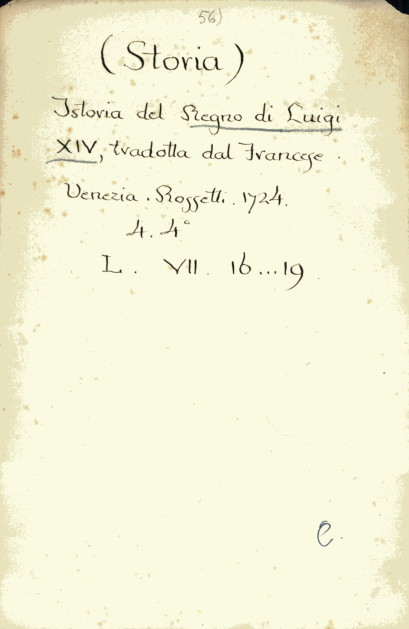 56)
(Storia)
Istoria del Regno di Luigi
XIV, tradotta dal Francese.
Venezia. Rossetti. 1724.
4. 4°
L. VII. 16...19
C.